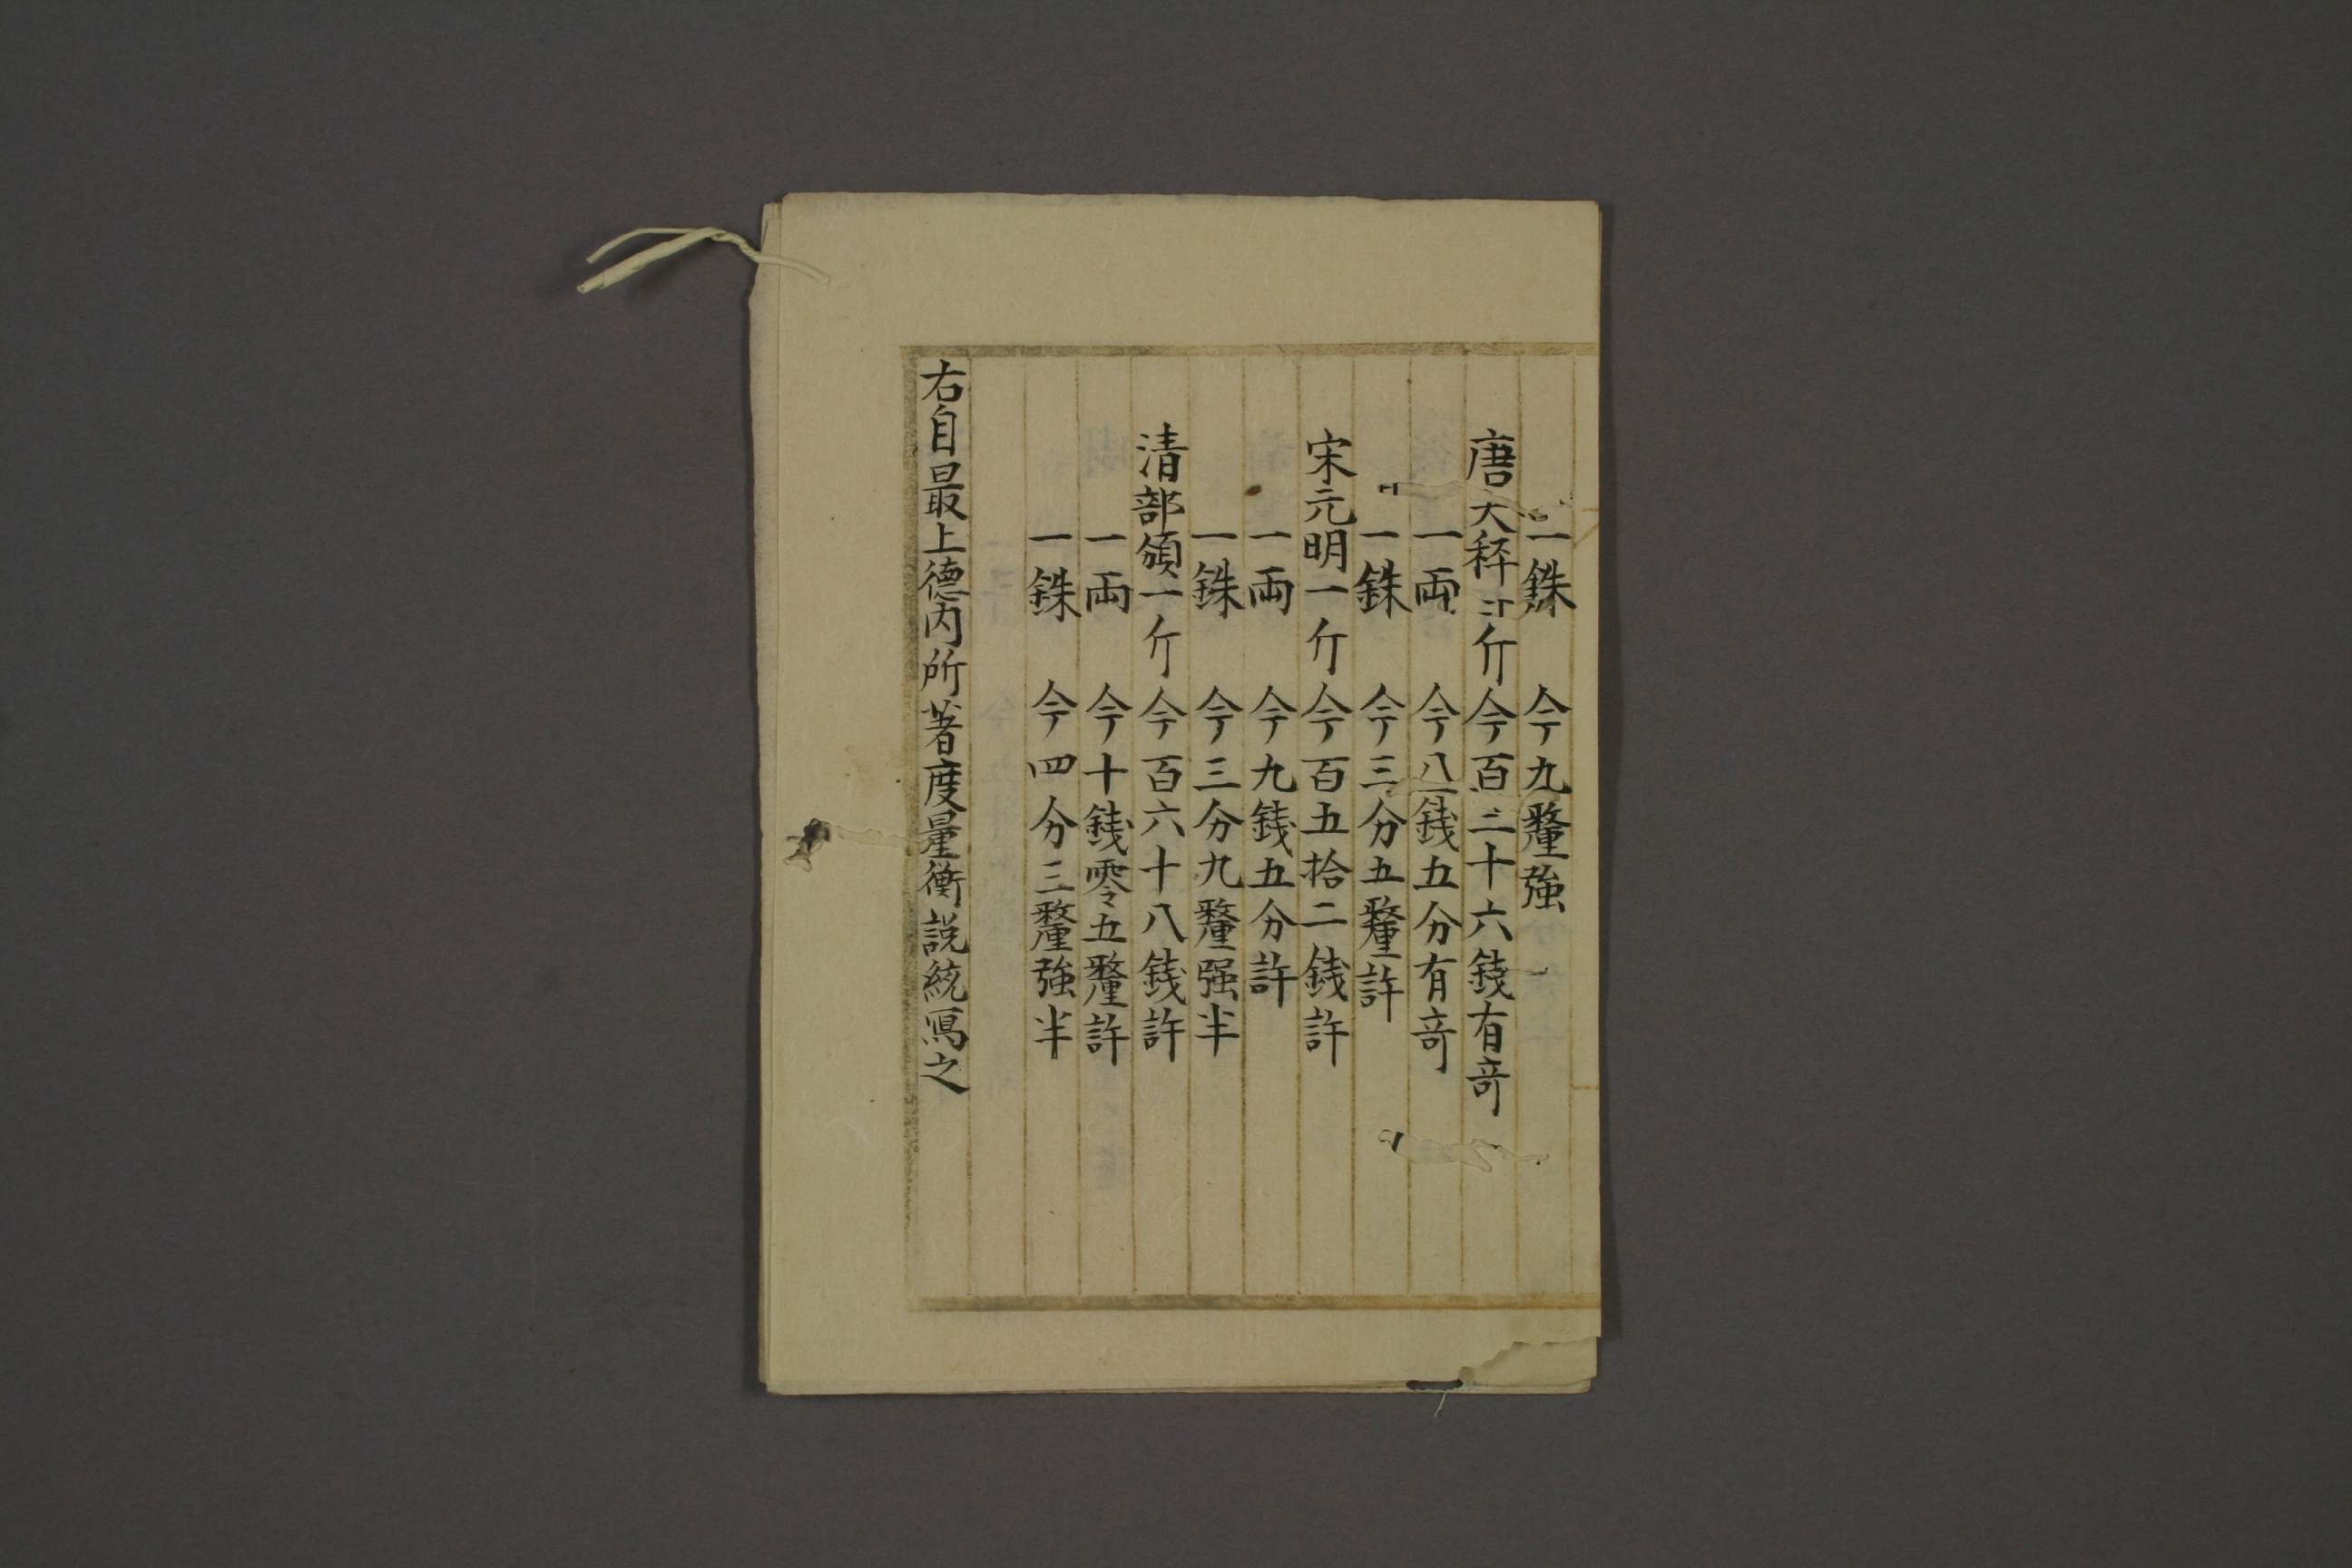 一銖　今九釐強
唐大秤一斤今百三十六錢有竒
一両　今八錢五分有竒
一銖　今三分五釐許
宋元明一斤今百五拾二銭許
一両　今九銭五分許
一銖　今三分九釐强半
清部頒一斤今百六十八銭許
一両　今十銭零五釐許
一銖　今四分三釐強半
右自最上德内所著度量衡説統寫之